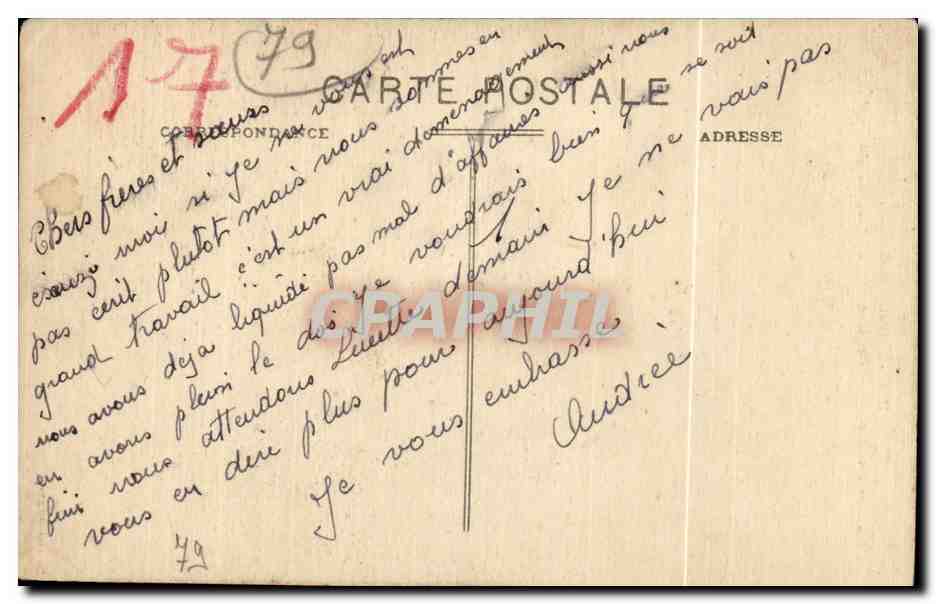 17
79
CARTE POSTALE
CORRESPONDANCE
ADRESSE
Chers frères et sœurs
moi si je ne vous est
pas écrit plutot mais nous sommes en
grand travail c'est un vrai demenagement
nous avous déja liquidé pas mal d'affaires aussi nous
en avons plein le dos je voudrais bien que se soit
fini nous attendons Lucette demain Je ne vais pas
vous en dire plus pour aujourd'hui
Je vous embrasse
Andrée
79
CPAPHIL